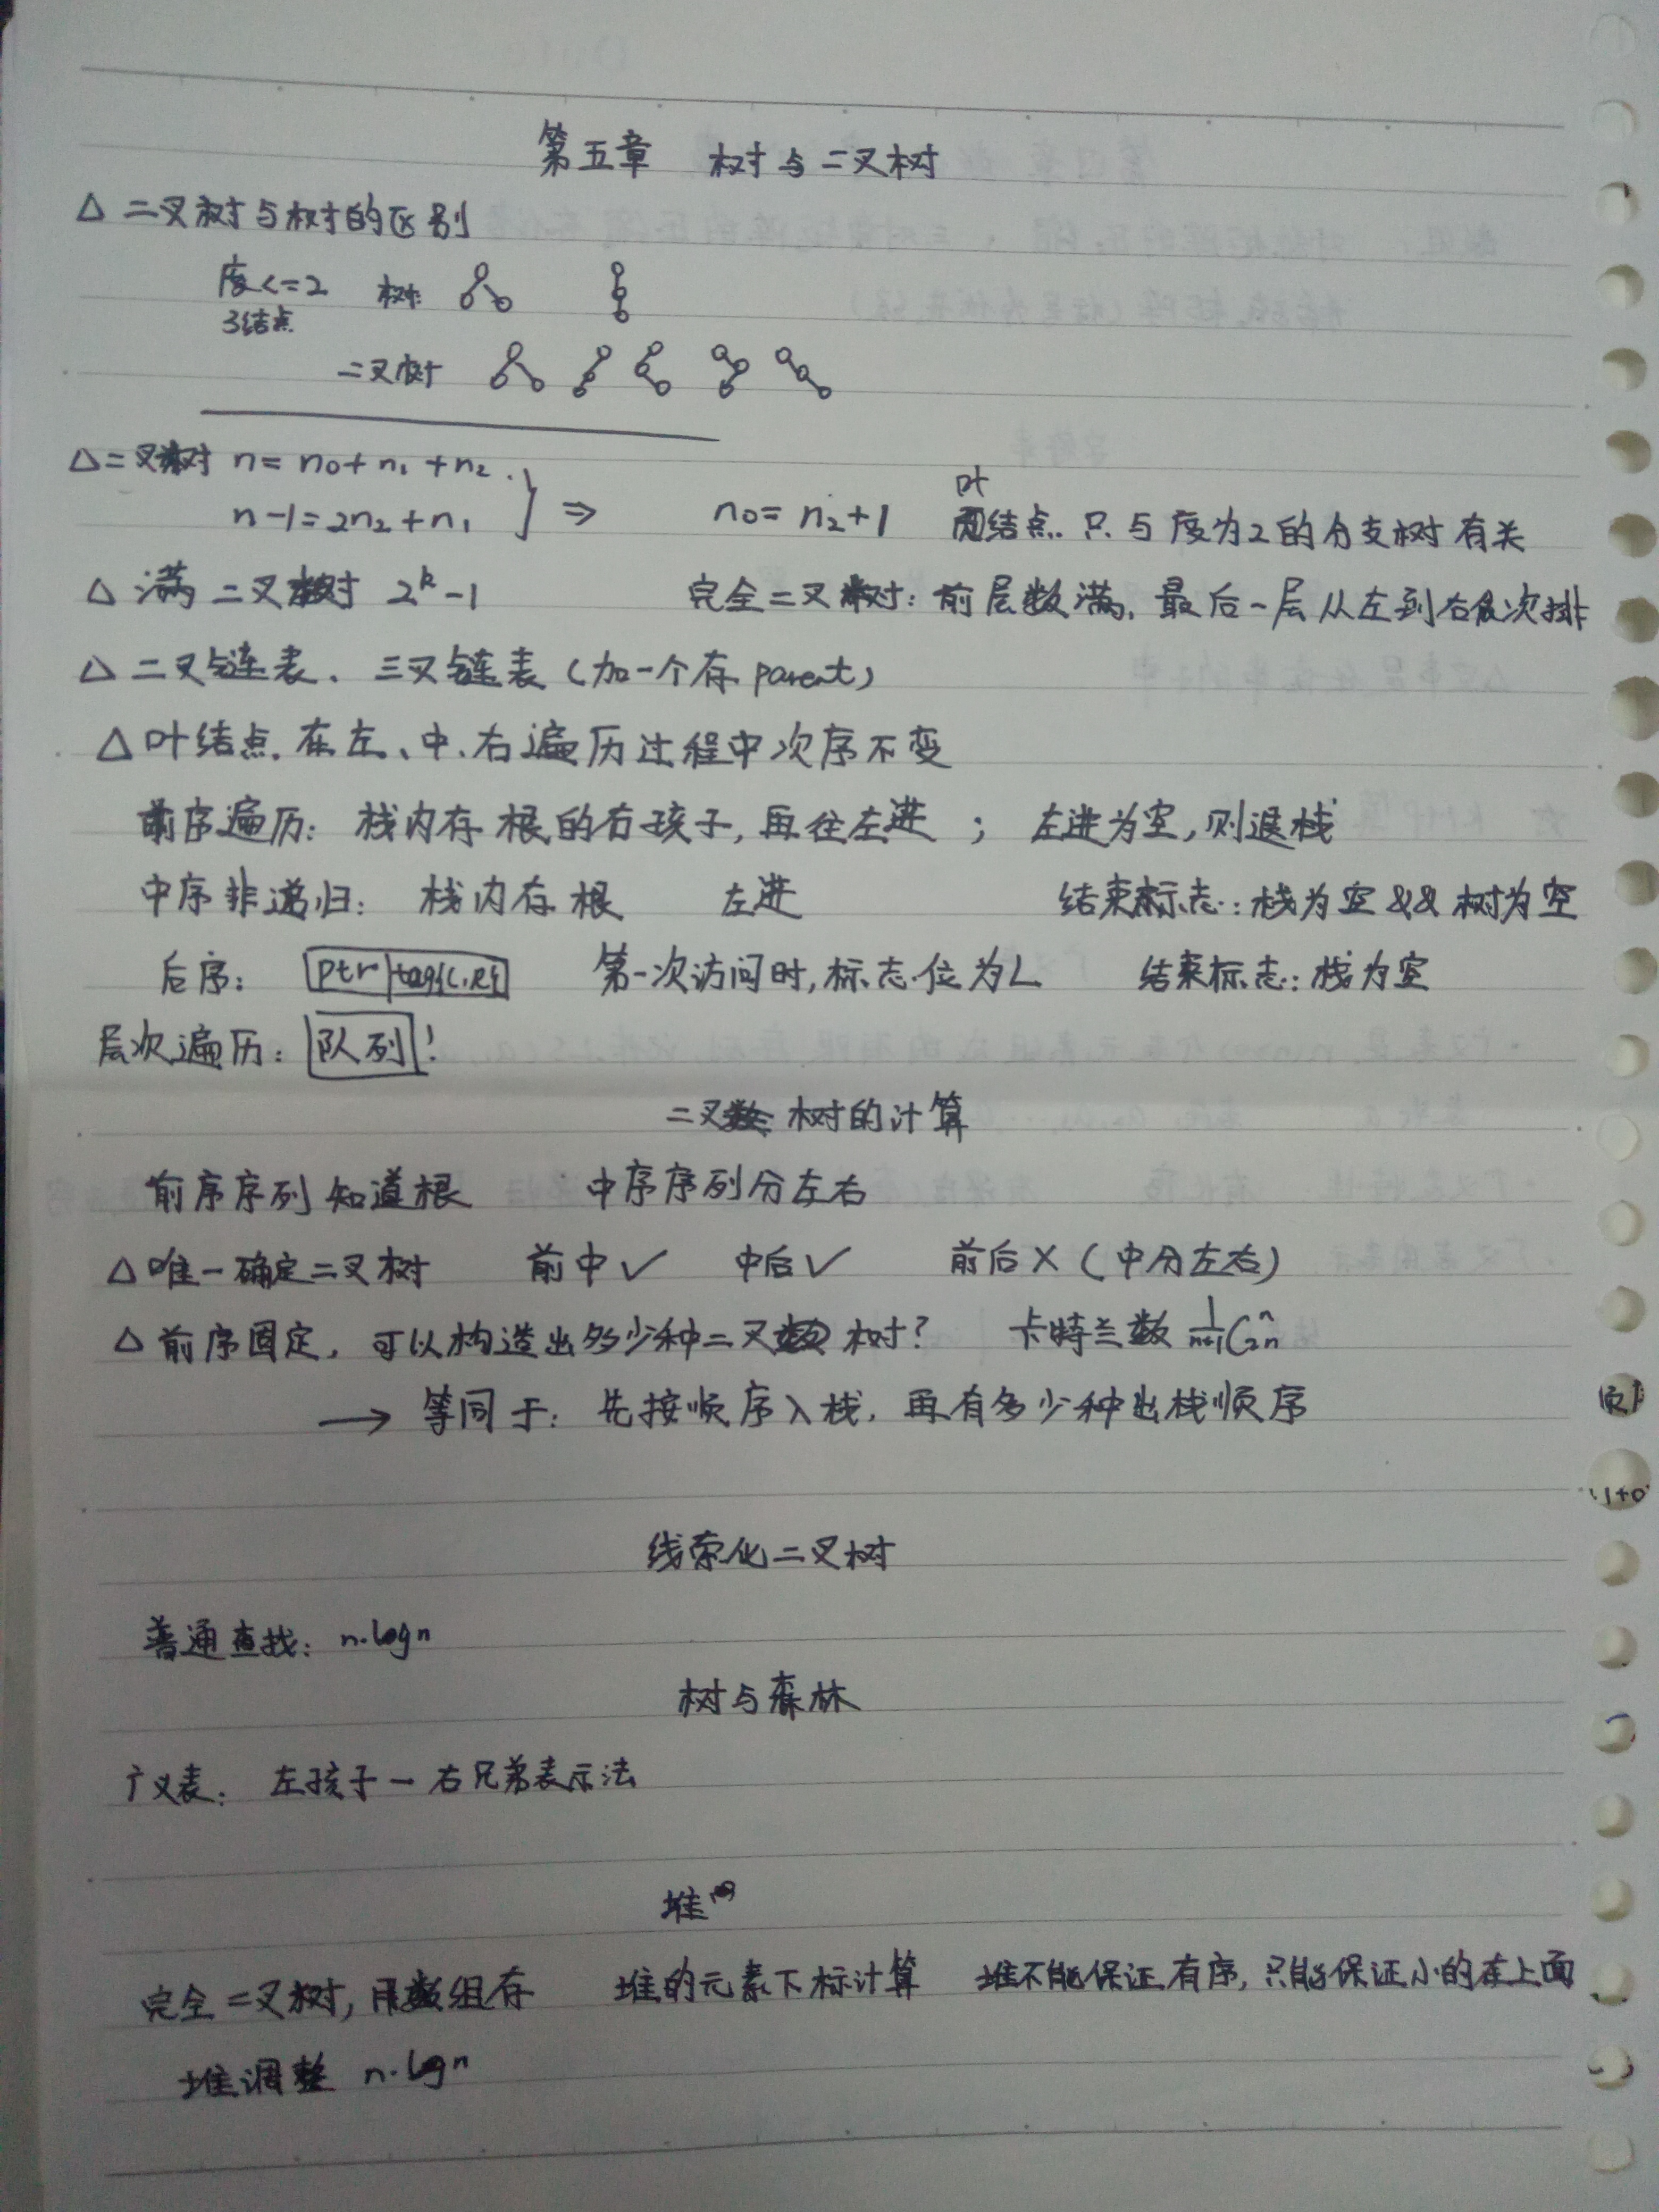 第五章 树与二叉树
△ 二叉树与树的区别
度<=2 树:
3结点
二叉树
△二叉树 n = n₀ + n₁ + n₂.
n-1 = 2n₂ + n₁ } ⇒ n₀ = n₂+1 叶结点. 只与度为2的分支树有关
△ 满二叉树 2ᵏ-1 完全二叉树: 前层数满, 最后一层从左到右依次排
△ 二叉链表、三叉链表 (加一个存 parent)
△ 叶结点. 在左、中、右遍历过程中次序不变
前序遍历: 栈内存根的右孩子, 再往左进 ; 左进为空, 则退栈
中序非递归: 栈内存根 左进 结束标志: 栈为空 && 树为空
后序: ptr|tag{L,R} 第一次访问时, 标志位为L 结束标志: 栈为空
层次遍历: 队列!
二叉树的计算
前序序列知道根 中序序列分左右
△ 唯一确定二叉树 前中 ✓ 中后 ✓ 前后 X (中分左右)
△ 前序固定, 可以构造出多少种二叉树? 卡特兰数 1/(n+1) C₂ₙⁿ
→ 等同于: 先按顺序入栈, 再有多少种出栈顺序
线索化二叉树
普通查找: n·logn
树与森林
广义表: 左孩子-右兄弟表示法
堆
完全二叉树, 用数组存 堆的元素下标计算 堆不能保证有序, 只能保证小的在上面
堆调整 n·logn